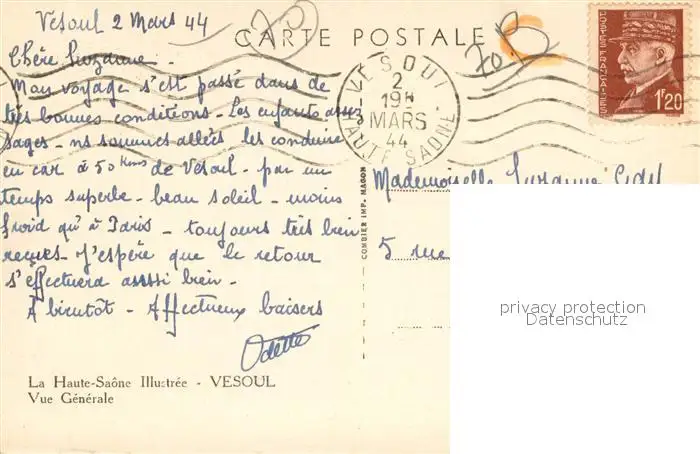 Vesoul 2 Mars 44
CARTE POSTALE
Chère Suzanne -
Mon voyage s'est passé dans de
très bonnes conditions - Les enfants assez
sages - ns sommes allées les conduire
en car à 50 kms de Vesoul - par un
temps superbe - beau soleil - moins
froid qu'à Paris - toujours très bien
reçues - J'espère que le retour
s'effectuera aussi bien -
A bientôt - Affectueux baisers
Odette
La Haute-Saône Illustrée - VESOUL
Vue Générale
COMBIER IMP. MAGON
VESOUL
2
19H
MARS
44
HAUTE SAÔNE
70 B
POSTES FRANÇAISES
1F20
Mademoiselle Suzanne
5 rue
privacy protection
Datenschutz